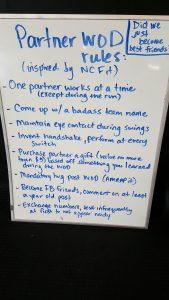 Partner WOD
rules:
(inspired by NCFit)
Did we
just
become
best friends?
- One partner works at a time
(except during the run)
- Come up w/ a badass team name
- Maintain eye contact during swings
- Invent handshake, perform at every
switch
- Purchase partner a gift (value no more
than $5) based off something you learned
during the WOD
- Mandatory hug post WOD (AMRAP it)
- Become FB friends, comment on at least
a year old post
- Exchange numbers, text infrequently
at first to not appear needy